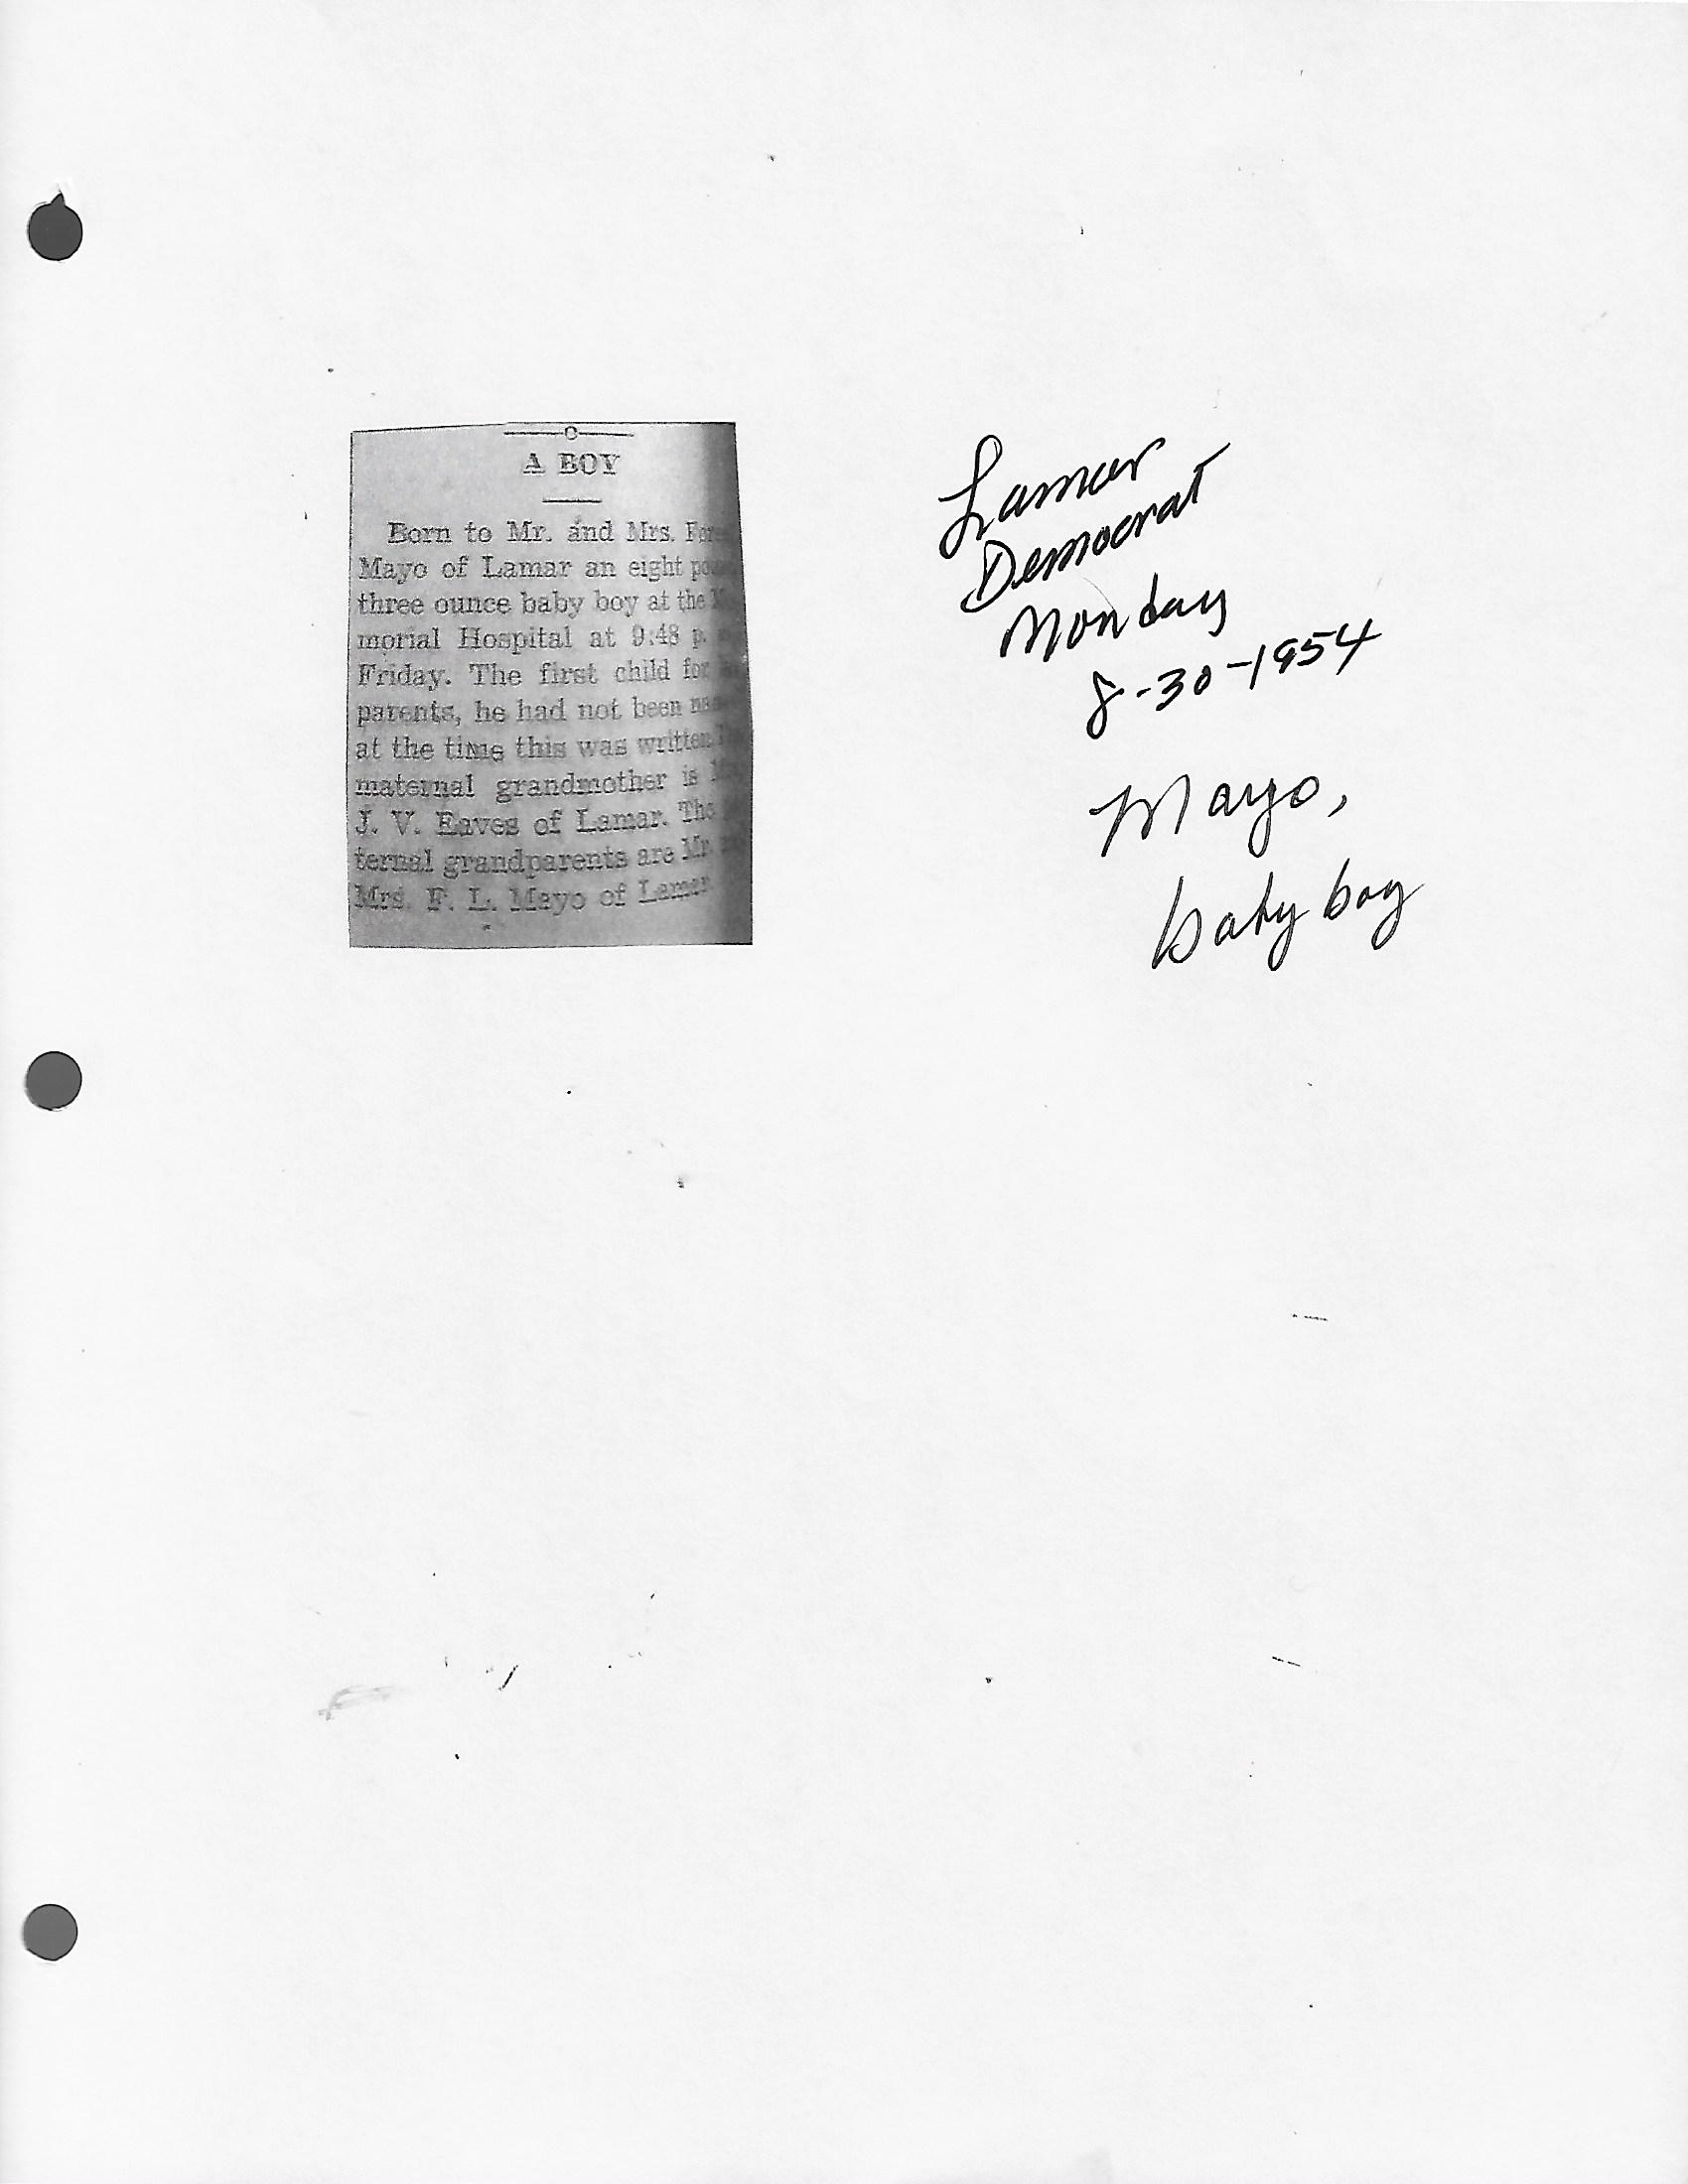 A BOY
Born to Mr. and Mrs.
Mayo of Lamar an eight
three ounce baby boy at the
morial Hospital at 9:48 p.
Friday. The first child for
parents, he had not been
at the time this was written
maternal grandmother is
J. V. Eaves of Lamar. The
ternal grandparents are Mr.
Mrs. F. L. Mayo of Lamar.
Lamar
Democrat
Monday
8-30-1954
Mayo,
baby boy